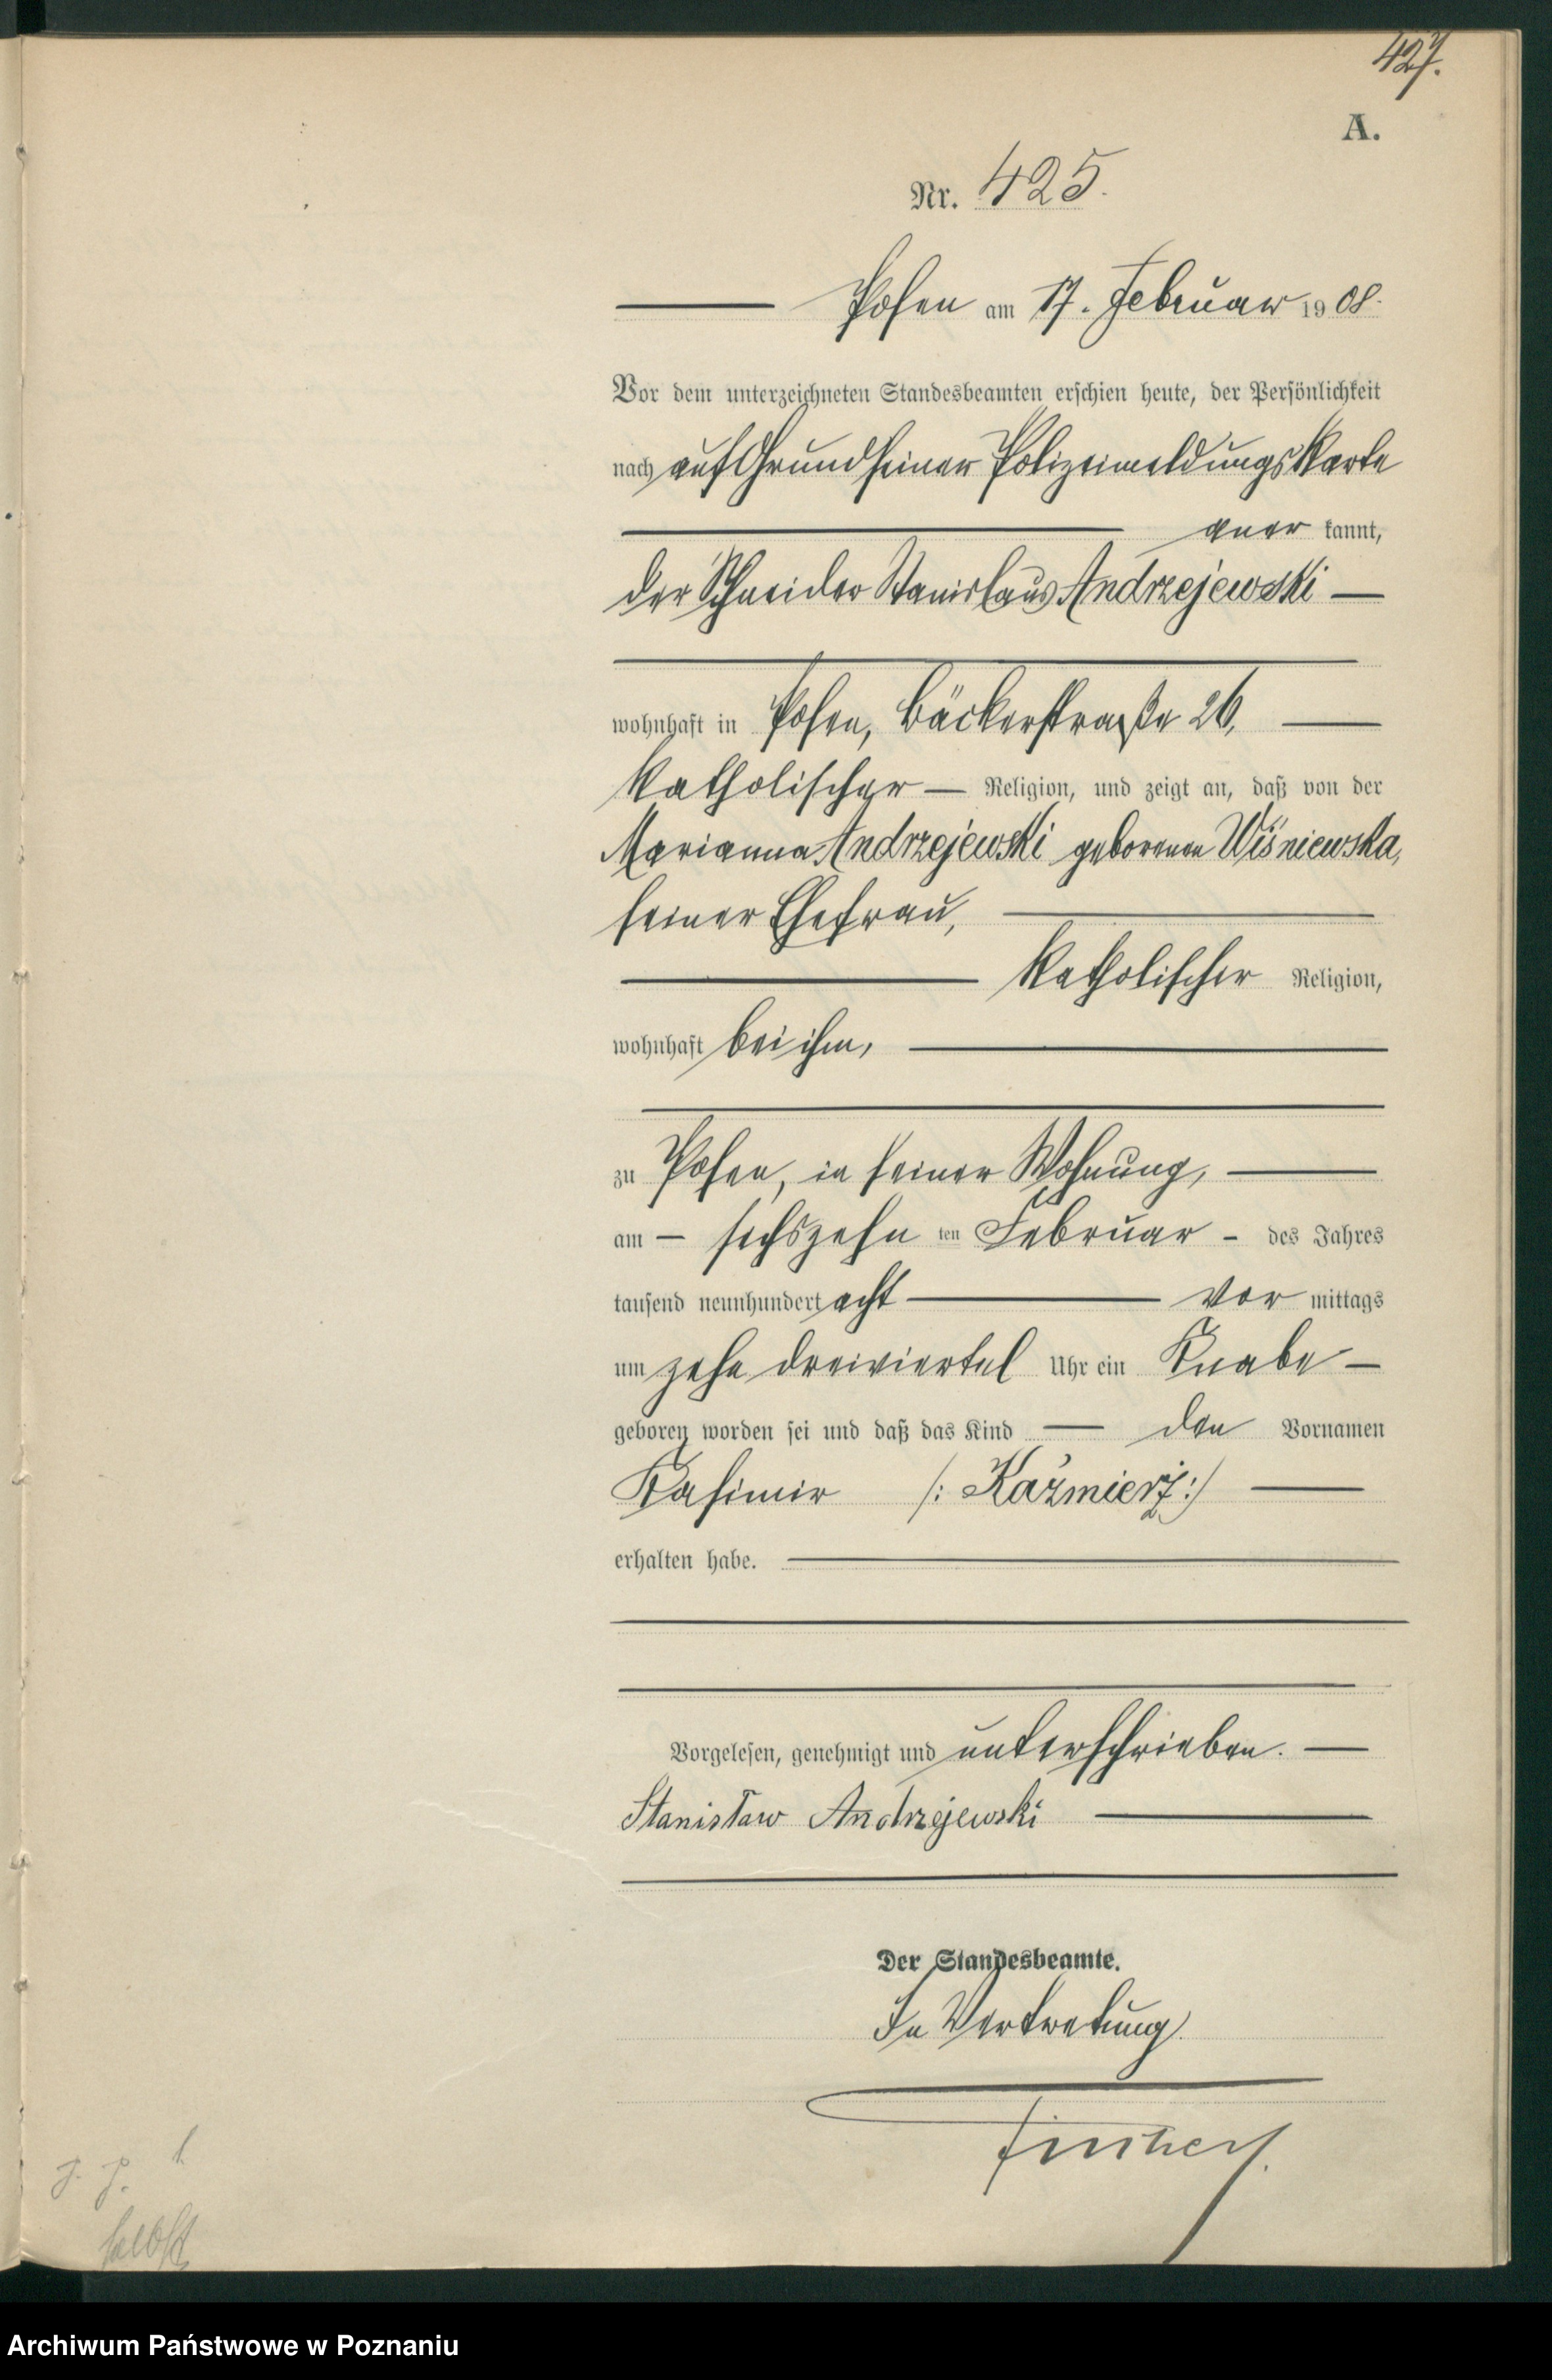 427.
A.
Nr. 425.
Posen am 17. Februar 1908.
Vor dem unterzeichneten Standesbeamten erschien heute, der Persönlichkeit
nach auf Grund seiner Polizeimeldungskarte
aner kannt,
der Schneider Stanislaus Andrzejewski
wohnhaft in Posen, Bäckerstraße 26,
katholischer Religion, und zeigt an, daß von der
Marianna Andrzejewski geborenen Wiśniewska,
seiner Ehefrau,
katholischer Religion,
wohnhaft bei ihm,
zu Posen, in seiner Wohnung,
am sechszehn ten Februar des Jahres
tausend neunhundert acht Vor mittags
um zehn dreiviertel Uhr ein Knabe
geboren worden sei und daß das Kind den Vornamen
Kasimir /: Kaźmierz :/
erhalten habe.
Vorgelesen, genehmigt und unterschrieben.
Stanisław Andrzejewski
Der Standesbeamte.
In Vertretung
selbst
Archiwum Państwowe w Poznaniu